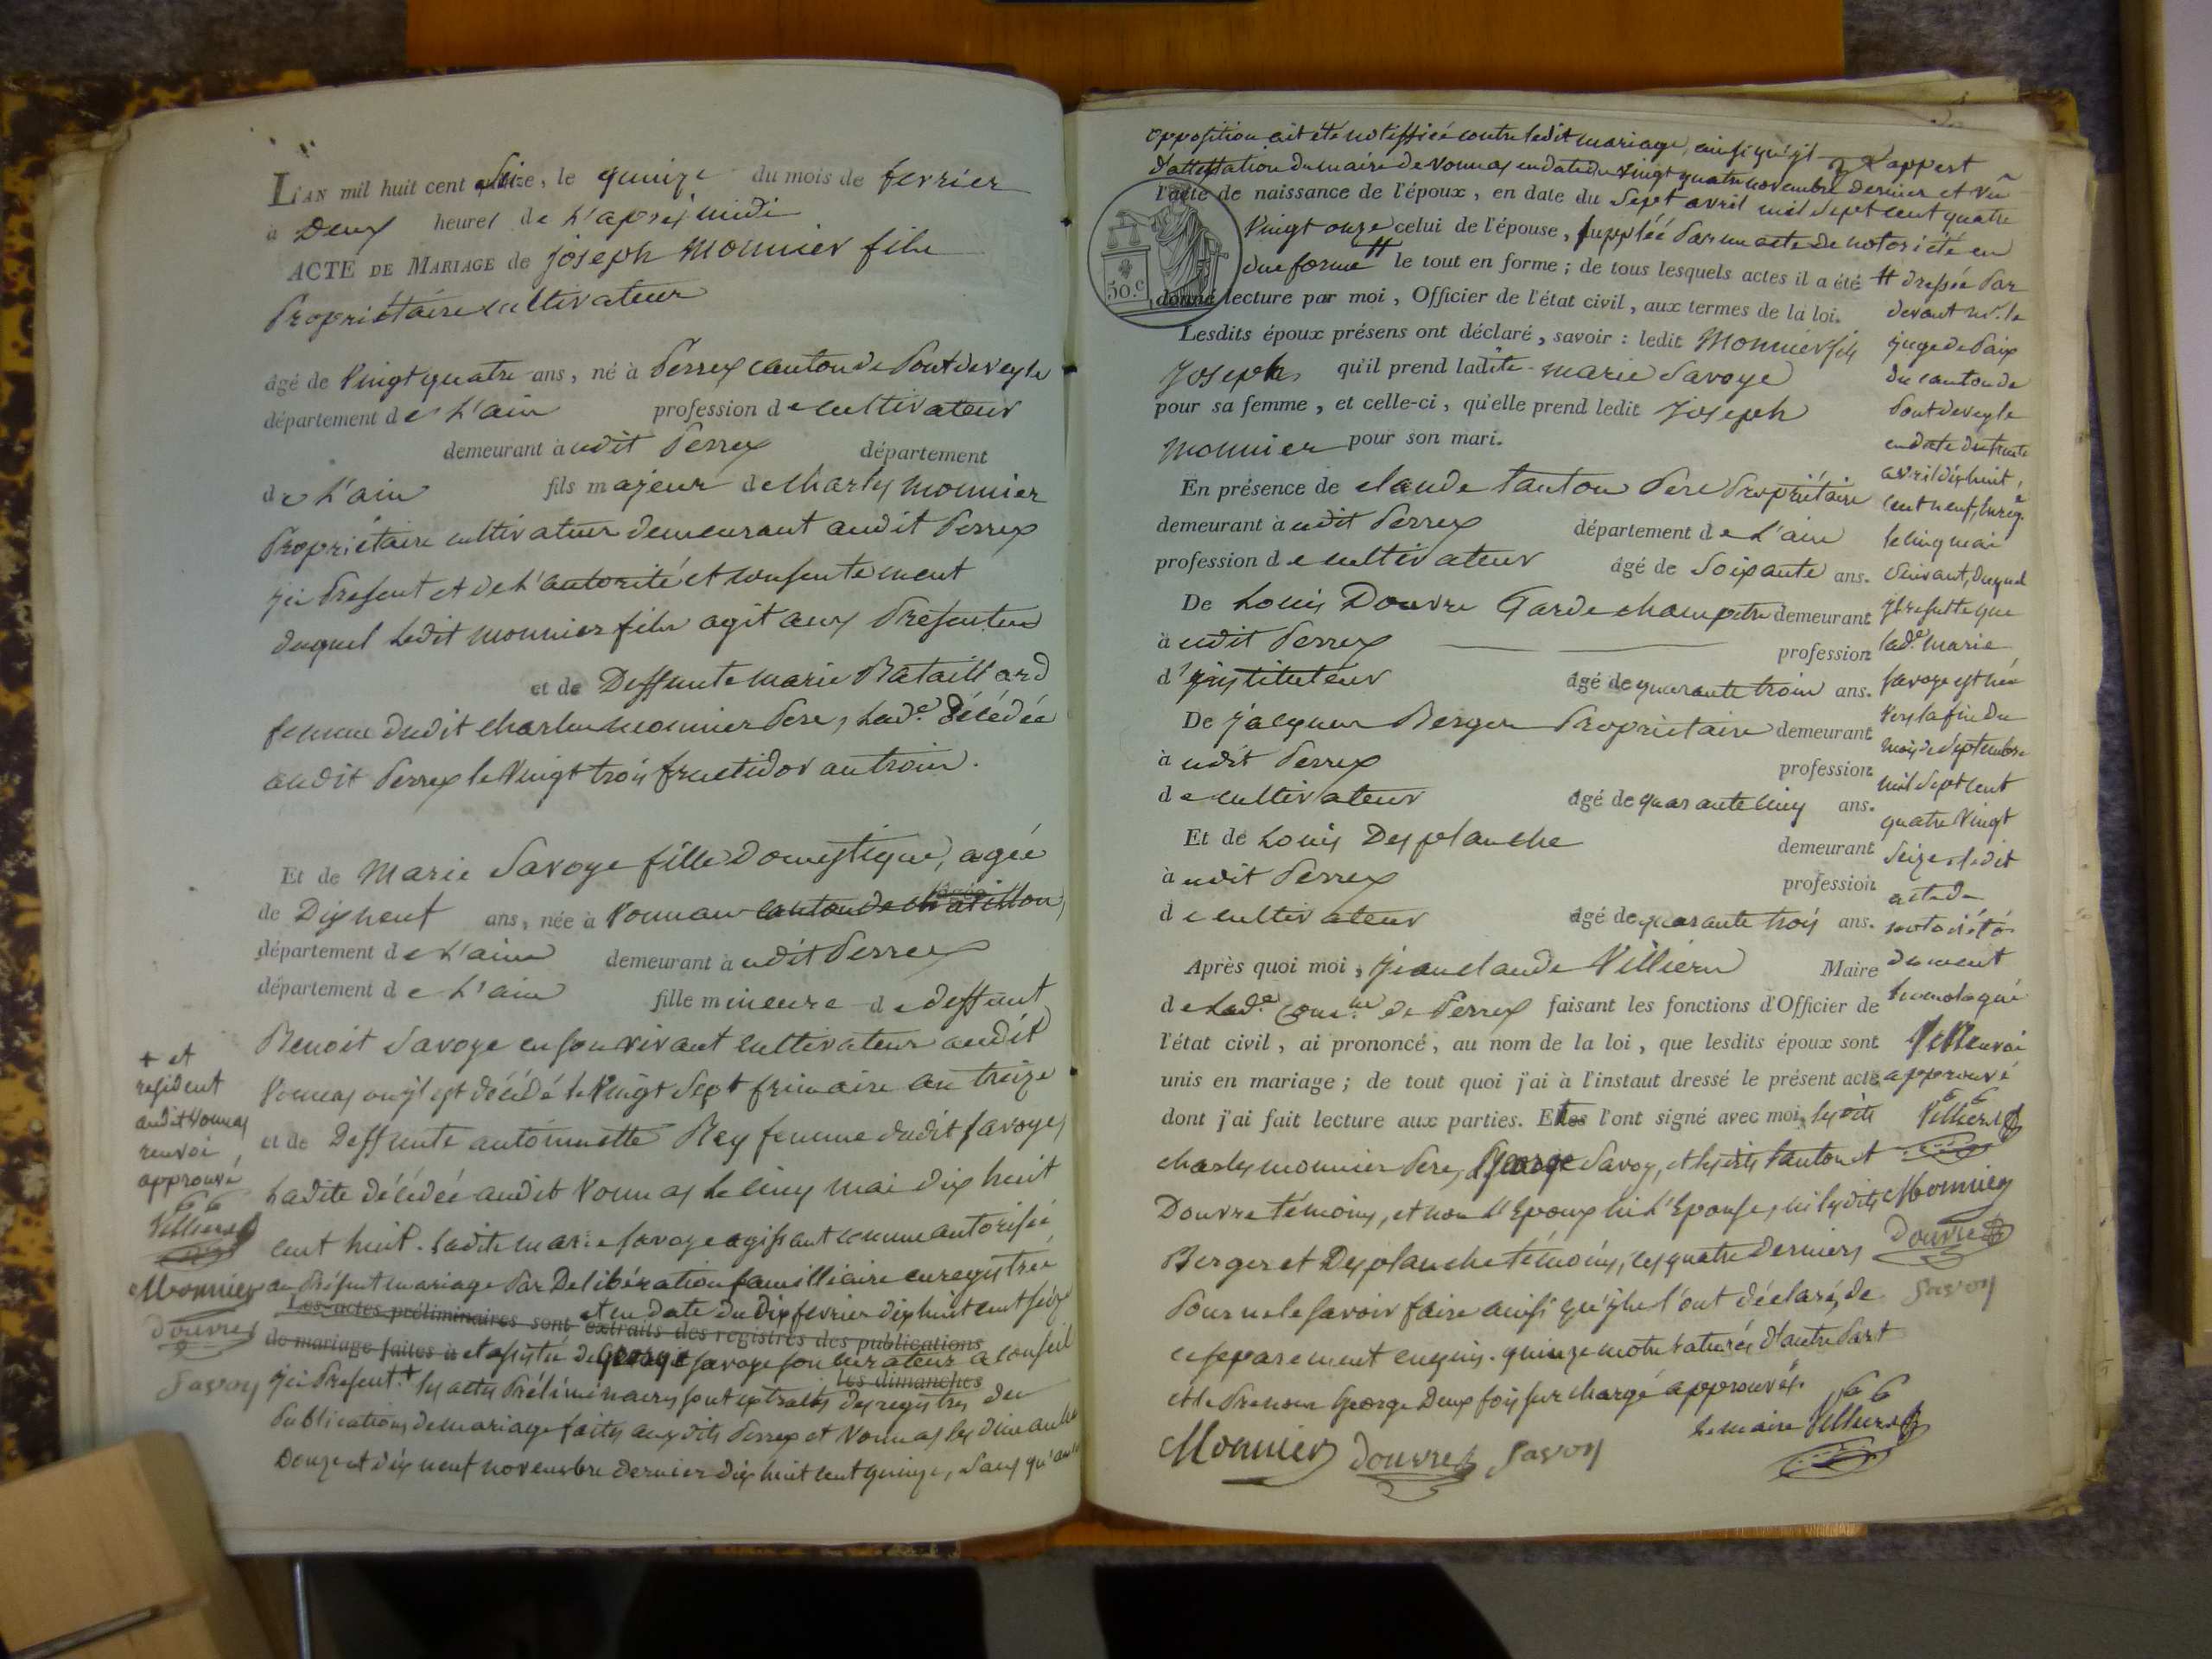 L'AN mil huit cent seize, le quinze du mois de fevrier
à Deux heures de L'apres midi
ACTE DE MARIAGE de joseph Monnier fils
Propriétaire cultivateur
âgé de Vingt quatre ans, né à Perrex canton de Pontdeveyle
département de L'ain profession de cultivateur
demeurant audit Perrex département
de L'ain fils majeur de Charles Monnier
Propriétaire cultivateur demeurant audit Perrex
ici Present et de L'autorité et consentement
duquel Ledit Monnier fils agit aux Présentes
et de Deffunte marie Bataillard
femme dudit charles monnier Pere, Lad.e décédée
audit Perrex le Vingt trois fructidor an trois.
Et de Marie Savoye fille Domestique, agée
de Dix neuf ans, née à Vonnas canton de chatillon
département de L'ain demeurant audit Perrex
département de L'ain fille mineure de deffunt
Benoit Savoye en son vivant cultivateur audit
Vonnas ou il est décédé le Vingt Sept frimaire an treize
et de Deffunte antoinette Rey femme dudit Savoye,
Ladite décédée audit Vonnas le cinq mai dix huit
cent huit. Ladite marie Savoye agissant comme autorisée
au Présent mariage Par Deliberation familliaire enregistrée
Les actes préliminaires sont extraits des registres des publications
et en Date du Dix fevrier dix huit cent seize
de mariage faites à
et assistée de George Savoye son curateur a conseil
les dimanches
ici Present.+ les actes Préliminaires sont extraits des registres des
Publications de mariage faites auxdits Perrex et Vonnas les dimanches
Douze et dix neuf novembre dernier dix huit cent quinze, Sans qu'aucune
+ et
resident
audit Vonnas
renvoi
approuvé
Villiers
Monnier
Douvre
Savoy
opposition ait été notiffiée contre ledit mariage, ainsi qu'il appert
D'attestation du maire de Vonnas en date du Vingt quatre novembre dernier et vu
50.c
l'acte de naissance de l'époux, en date du Sept avril mil Sept cent quatre
Vingt onze celui de l'épouse, suppléé Par un acte de notoriété en
due forme # le tout en forme ; de tous lesquels actes il a été
donné lecture par moi, Officier de l'état civil, aux termes de la loi.
Lesdits époux présens ont déclaré, savoir : ledit Monnier fils
Joseph qu'il prend ladite marie Savoye
pour sa femme, et celle-ci, qu'elle prend ledit Joseph
Monnier pour son mari.
En présence de claude Tanton Pere Propriétaire
demeurant audit Perrex département de L'ain
profession de cultivateur âgé de Soixante ans.
De Louis Douvre Garde champetre demeurant
audit Perrex profession
d'instituteur âgé de quarante trois ans.
De jacques Berger Proprietaire demeurant
audit Perrex profession
de cultivateur âgé de quarante cinq ans.
Et de Louis Desplanche demeurant
audit Perrex profession
de cultivateur âgé de quarante trois ans.
Après quoi moi, jean claude Villiers Maire
de Lad.e Com.ne de Perrex faisant les fonctions d'Officier de
l'état civil, ai prononcé, au nom de la loi, que lesdits époux sont
unis en mariage ; de tout quoi j'ai à l'instant dressé le présent acte
dont j'ai fait lecture aux parties. Et les l'ont signé avec moi, lesdits
charles monnier Pere, George Savoy, et lesdits Tanton et
Douvre témoins, et non L'Epoux ni L'Epouse, ni lesdits
Berger et Desplanche témoins, ces quatre Derniers
Pour ne le savoir faire ainsi qu'ils l'ont déclaré, de
ce séparement enquis. quinze mots raturés D'autre Part
et le Prenom George Deux fois surchargé approuvés.
Le maire Villiers
Monnier Douvre Savoy
# dressée Par
devant M.r le
juge de Paix
du canton de
Pontdeveyle
en date du trente
avril dix huit
cent neuf, Enreg.é
le cinq mai
Suivant, duquel
il resulte que
lad.e marie
Savoye est née
Vers la fin du
mois de Septembre
mil Sept cent
quatre Vingt
Seize, ledit
acte de
notoriété
dument
homologué
renvoi
approuvé
Villiers
Monnier
Douvre
Savoy